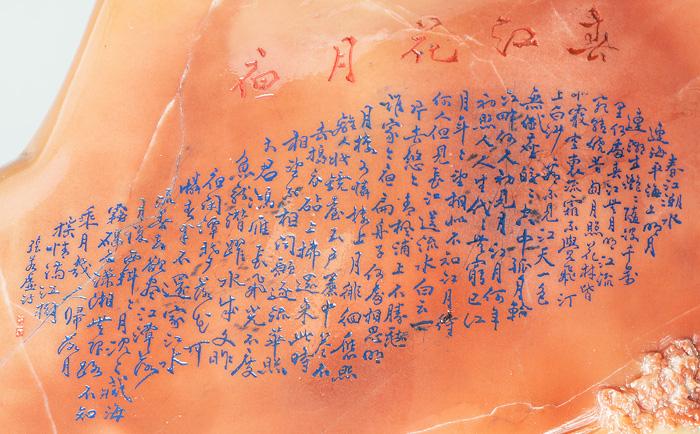 春江花月夜
春江潮水
連海平海上明月
共潮生灩灩隨波千萬
里何處春江無月明江流
宛轉繞芳甸月照花林皆
似霰空裏流霜不覺飛汀
上白沙看不見江天一色
無纖塵皎皎空中孤月輪
江畔何人初見月江月何年
初照人人生代代無窮已江
月年年望相似不知江月待
何人但見長江送流水白云一
片去悠悠青楓浦上不勝愁
誰家今夜扁舟子何處相思明
月樓可憐樓上月徘徊應照
離人妝鏡臺玉戶簾中卷不
去搗衣砧上拂還來此時
相望不相聞願逐月華流照
君鴻雁長飛光不度
魚龍潛躍水成文昨
夜閑潭夢落花可
憐春半不還家江水
流春去欲盡江潭落
月復西斜斜月沉沉藏海
霧碣石瀟湘無限路不知
乘月幾人歸落月
搖情滿江樹
張若虛詩